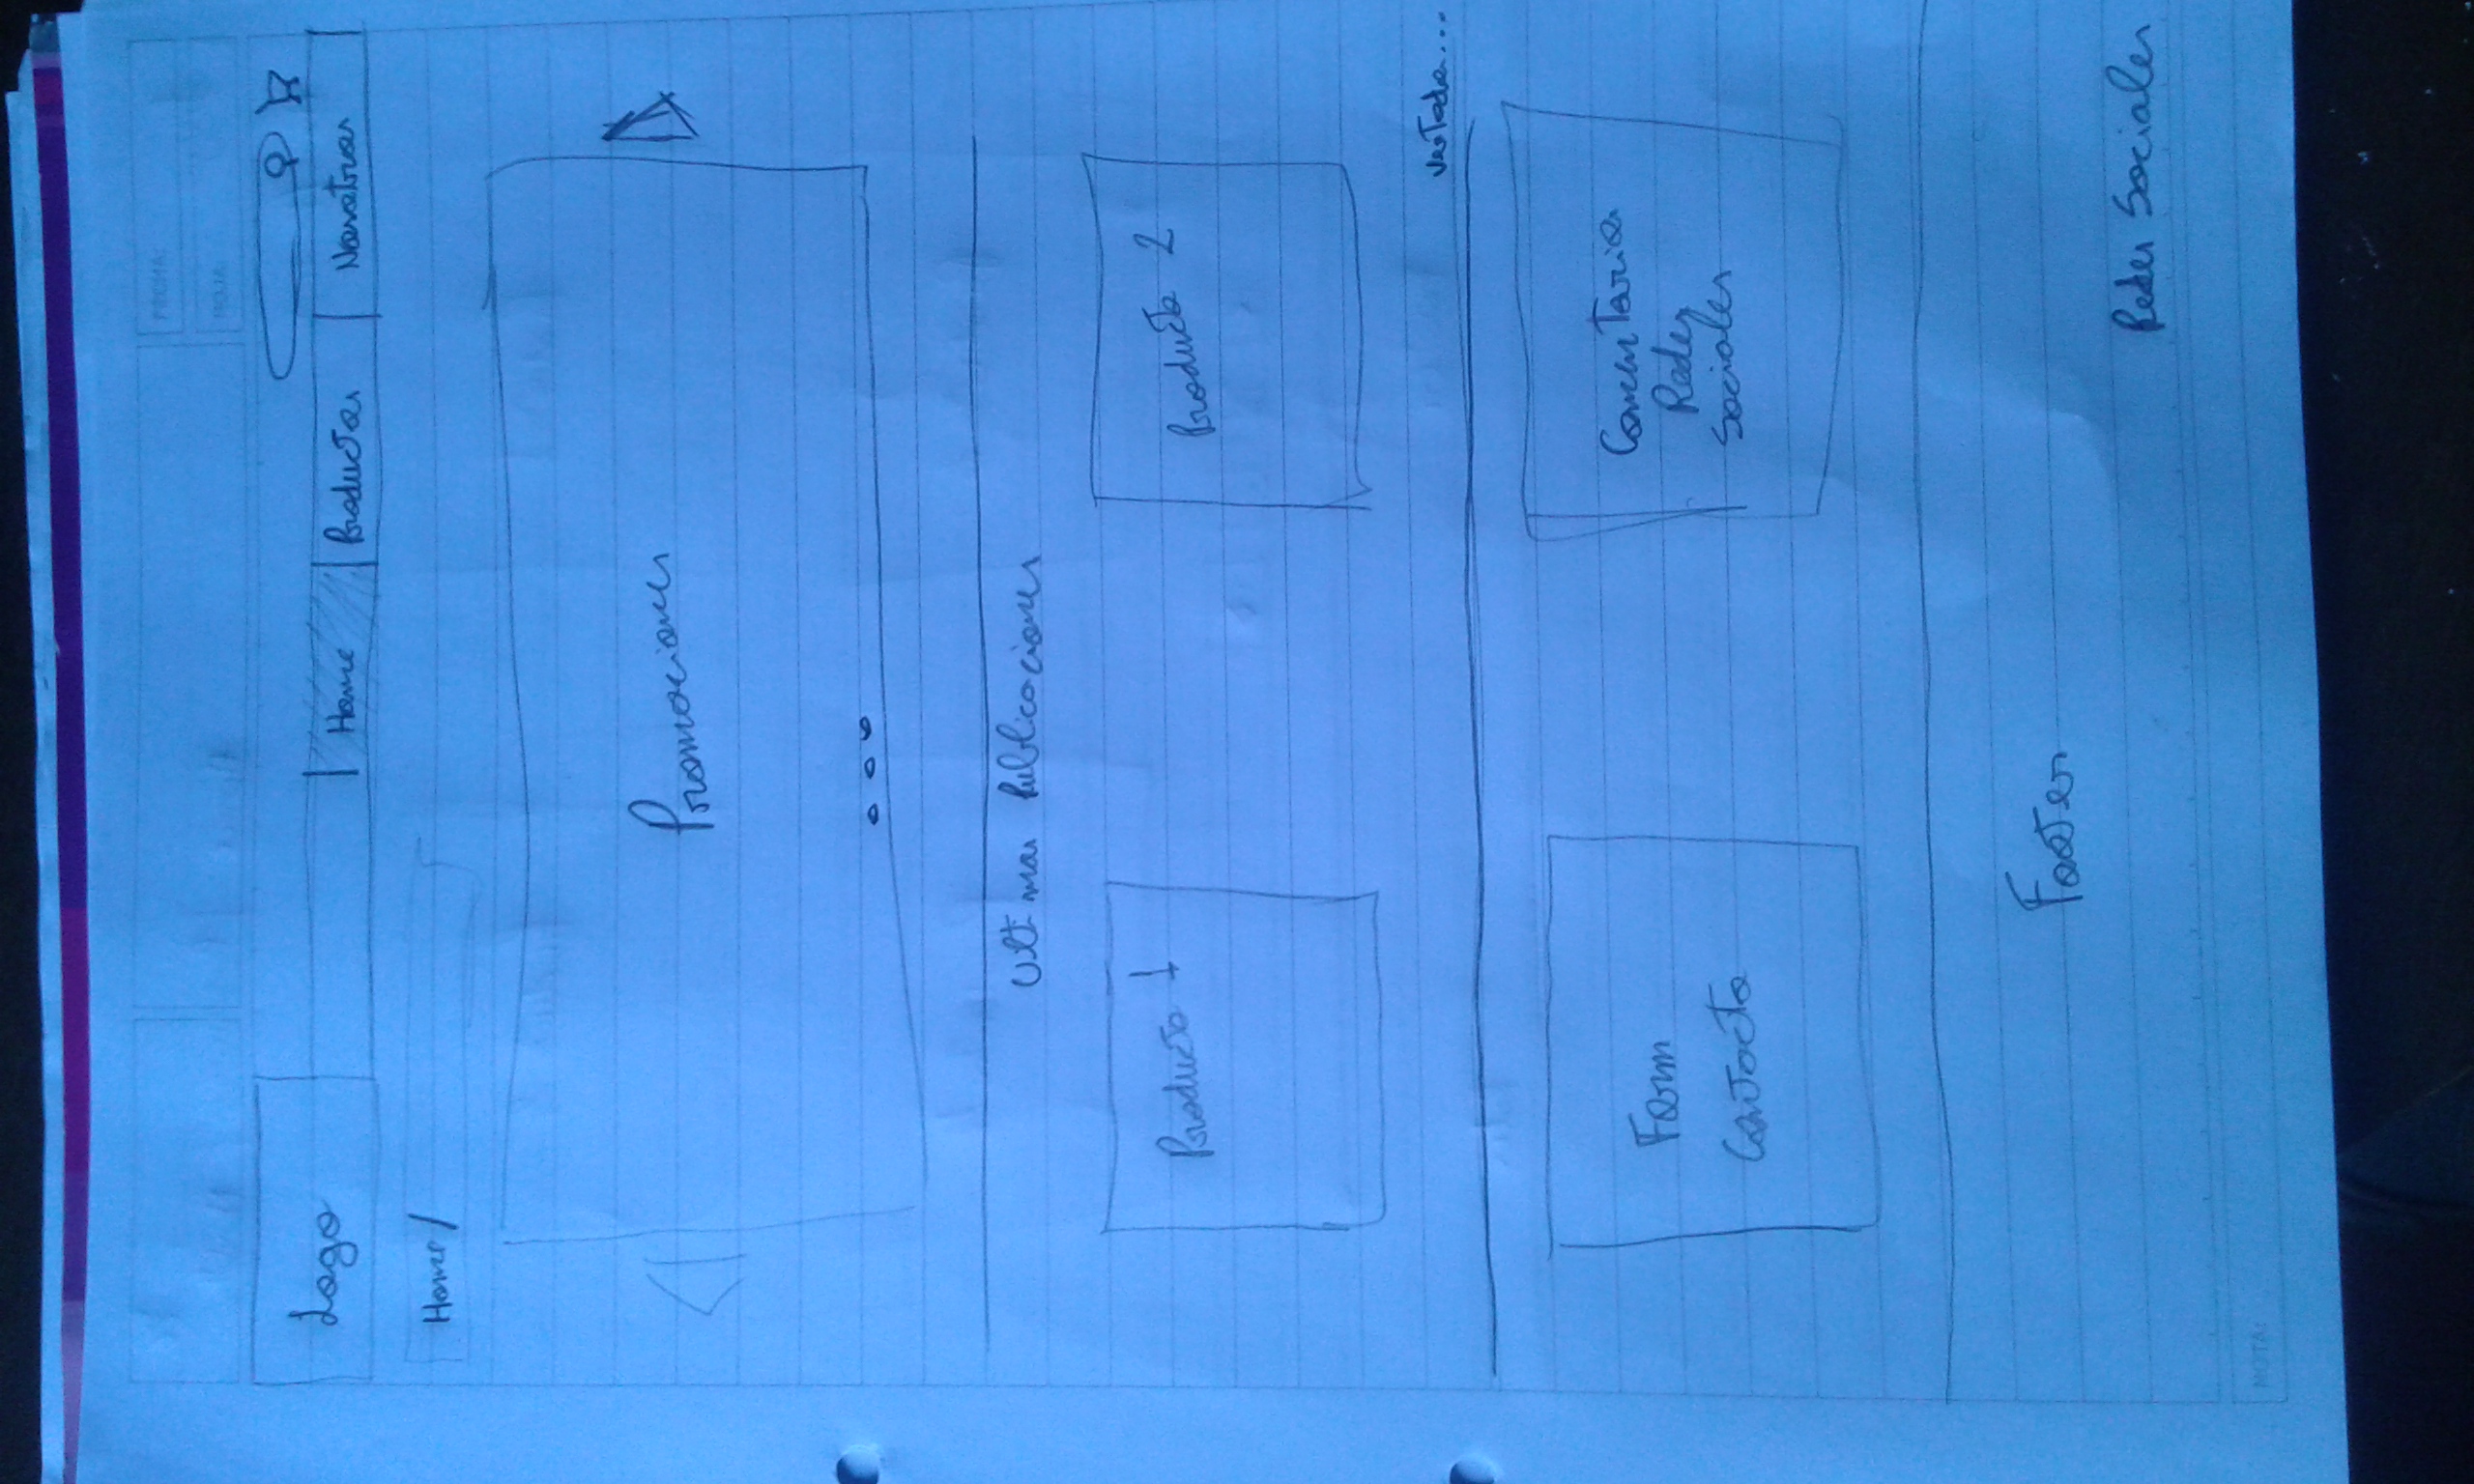 FECHA:
HOJA:
Logo
Home Productos Nosotros
Home/
Promociones
Ultimas Publicaciones
Producto 1
Producto 2
ver todos...
Form
Contacto
Comentarios
Redes
Sociales
Footer
Redes Sociales
NOTA: